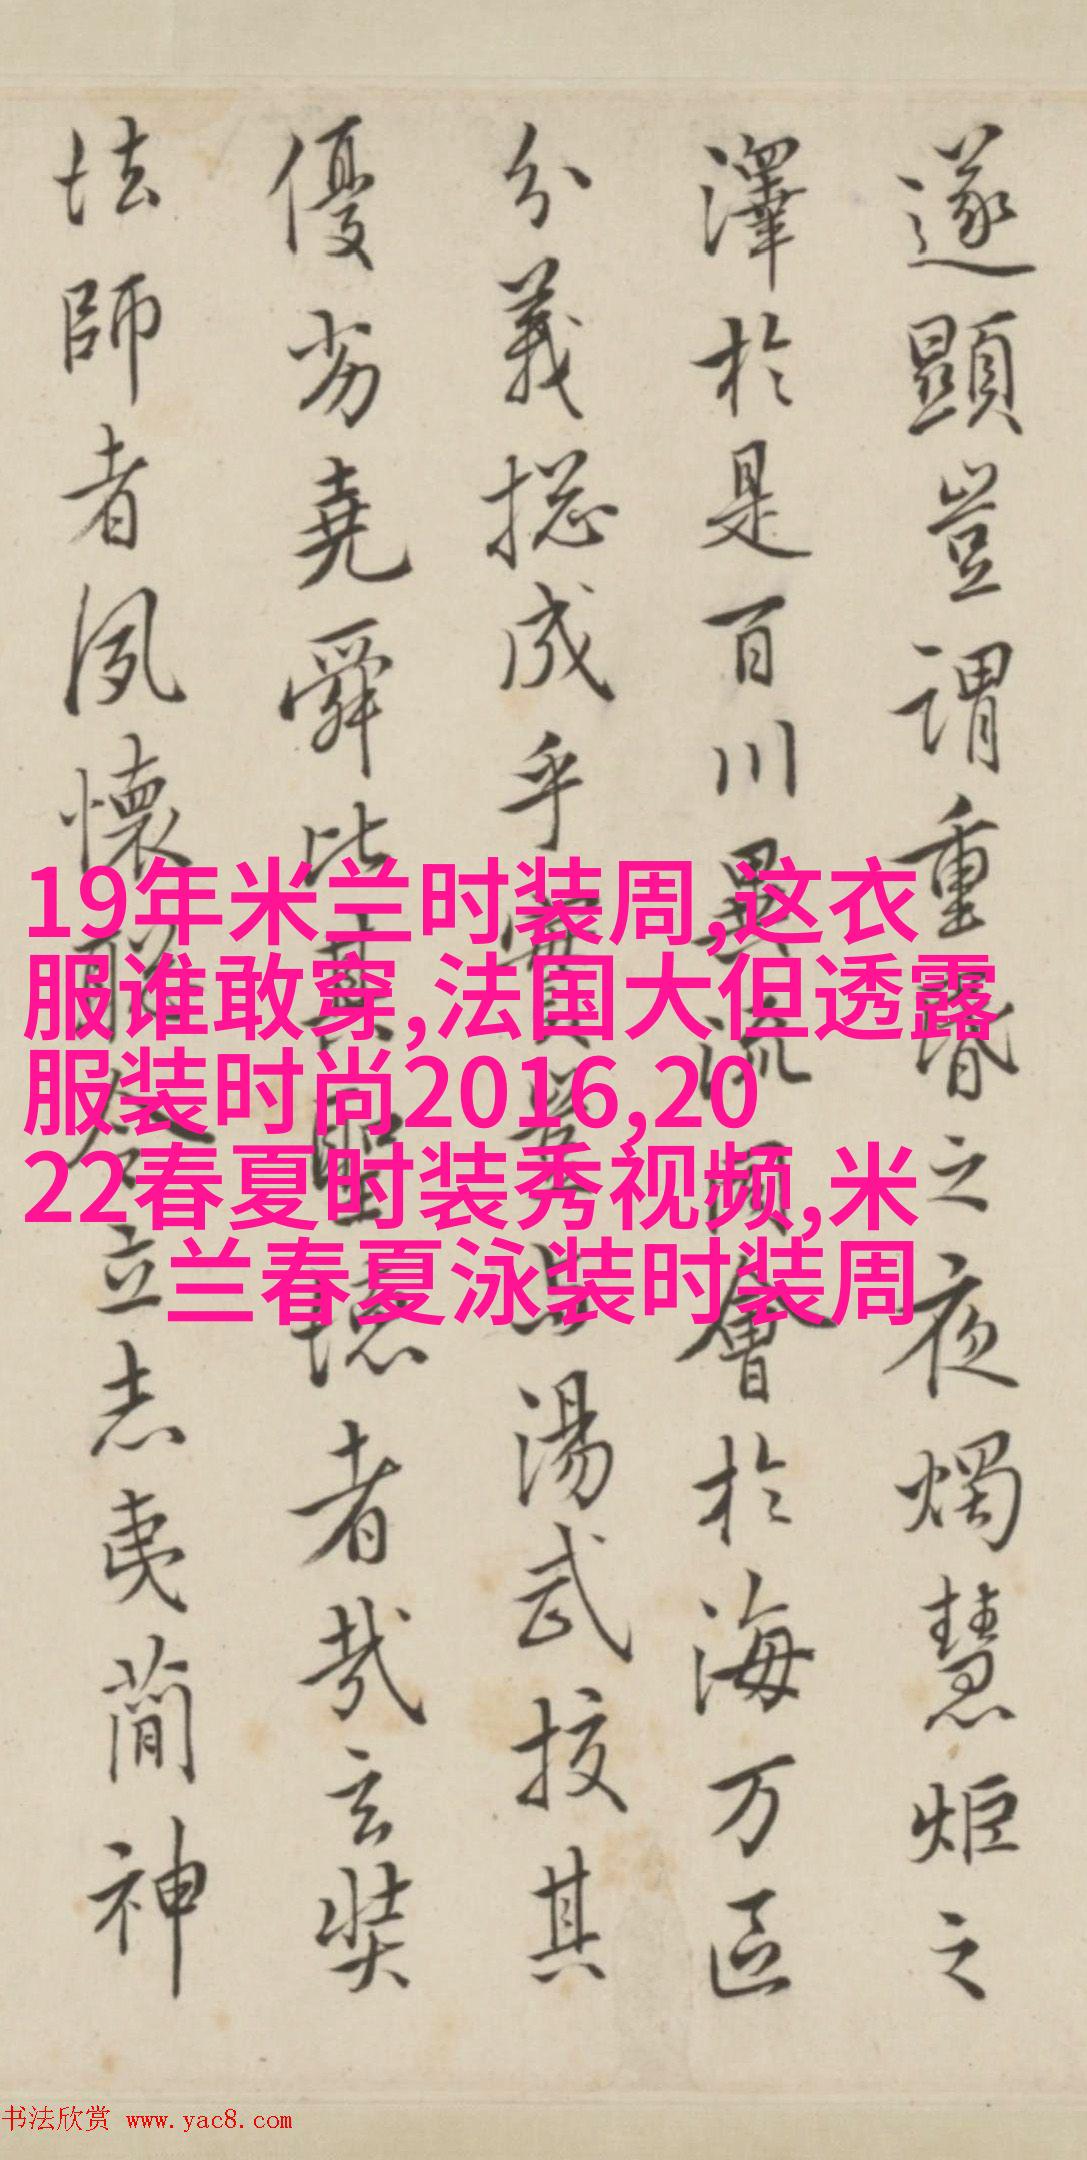 遂顯豈謂重昏之夜燭慧炬之
澤於是百川異流同會於海万區
分義捴成乎實豈與湯武挍其
優劣堯舜比其聖德者哉玄奘
法師者夙懷聡令立志夷簡神
19年米兰时装周,这衣
服谁敢穿,法国大但透露
服装时尚2016,20
22春夏时装秀视频,米
兰春夏泳装时装周
书法欣赏 www.yac8.com